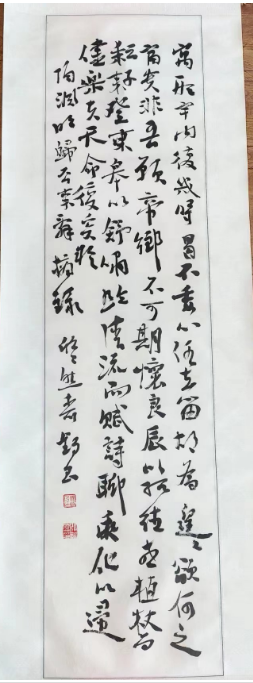 寓形宇内復幾時曷不委心任去留胡為遑々欲何之
富貴非吾願帝鄉不可期懷良辰以孤往或植杖而
耘耔登東皋以舒嘯臨清流而賦詩聊乘化以歸
盡樂夫天命復奚疑
陶淵明歸去來辭摘錄